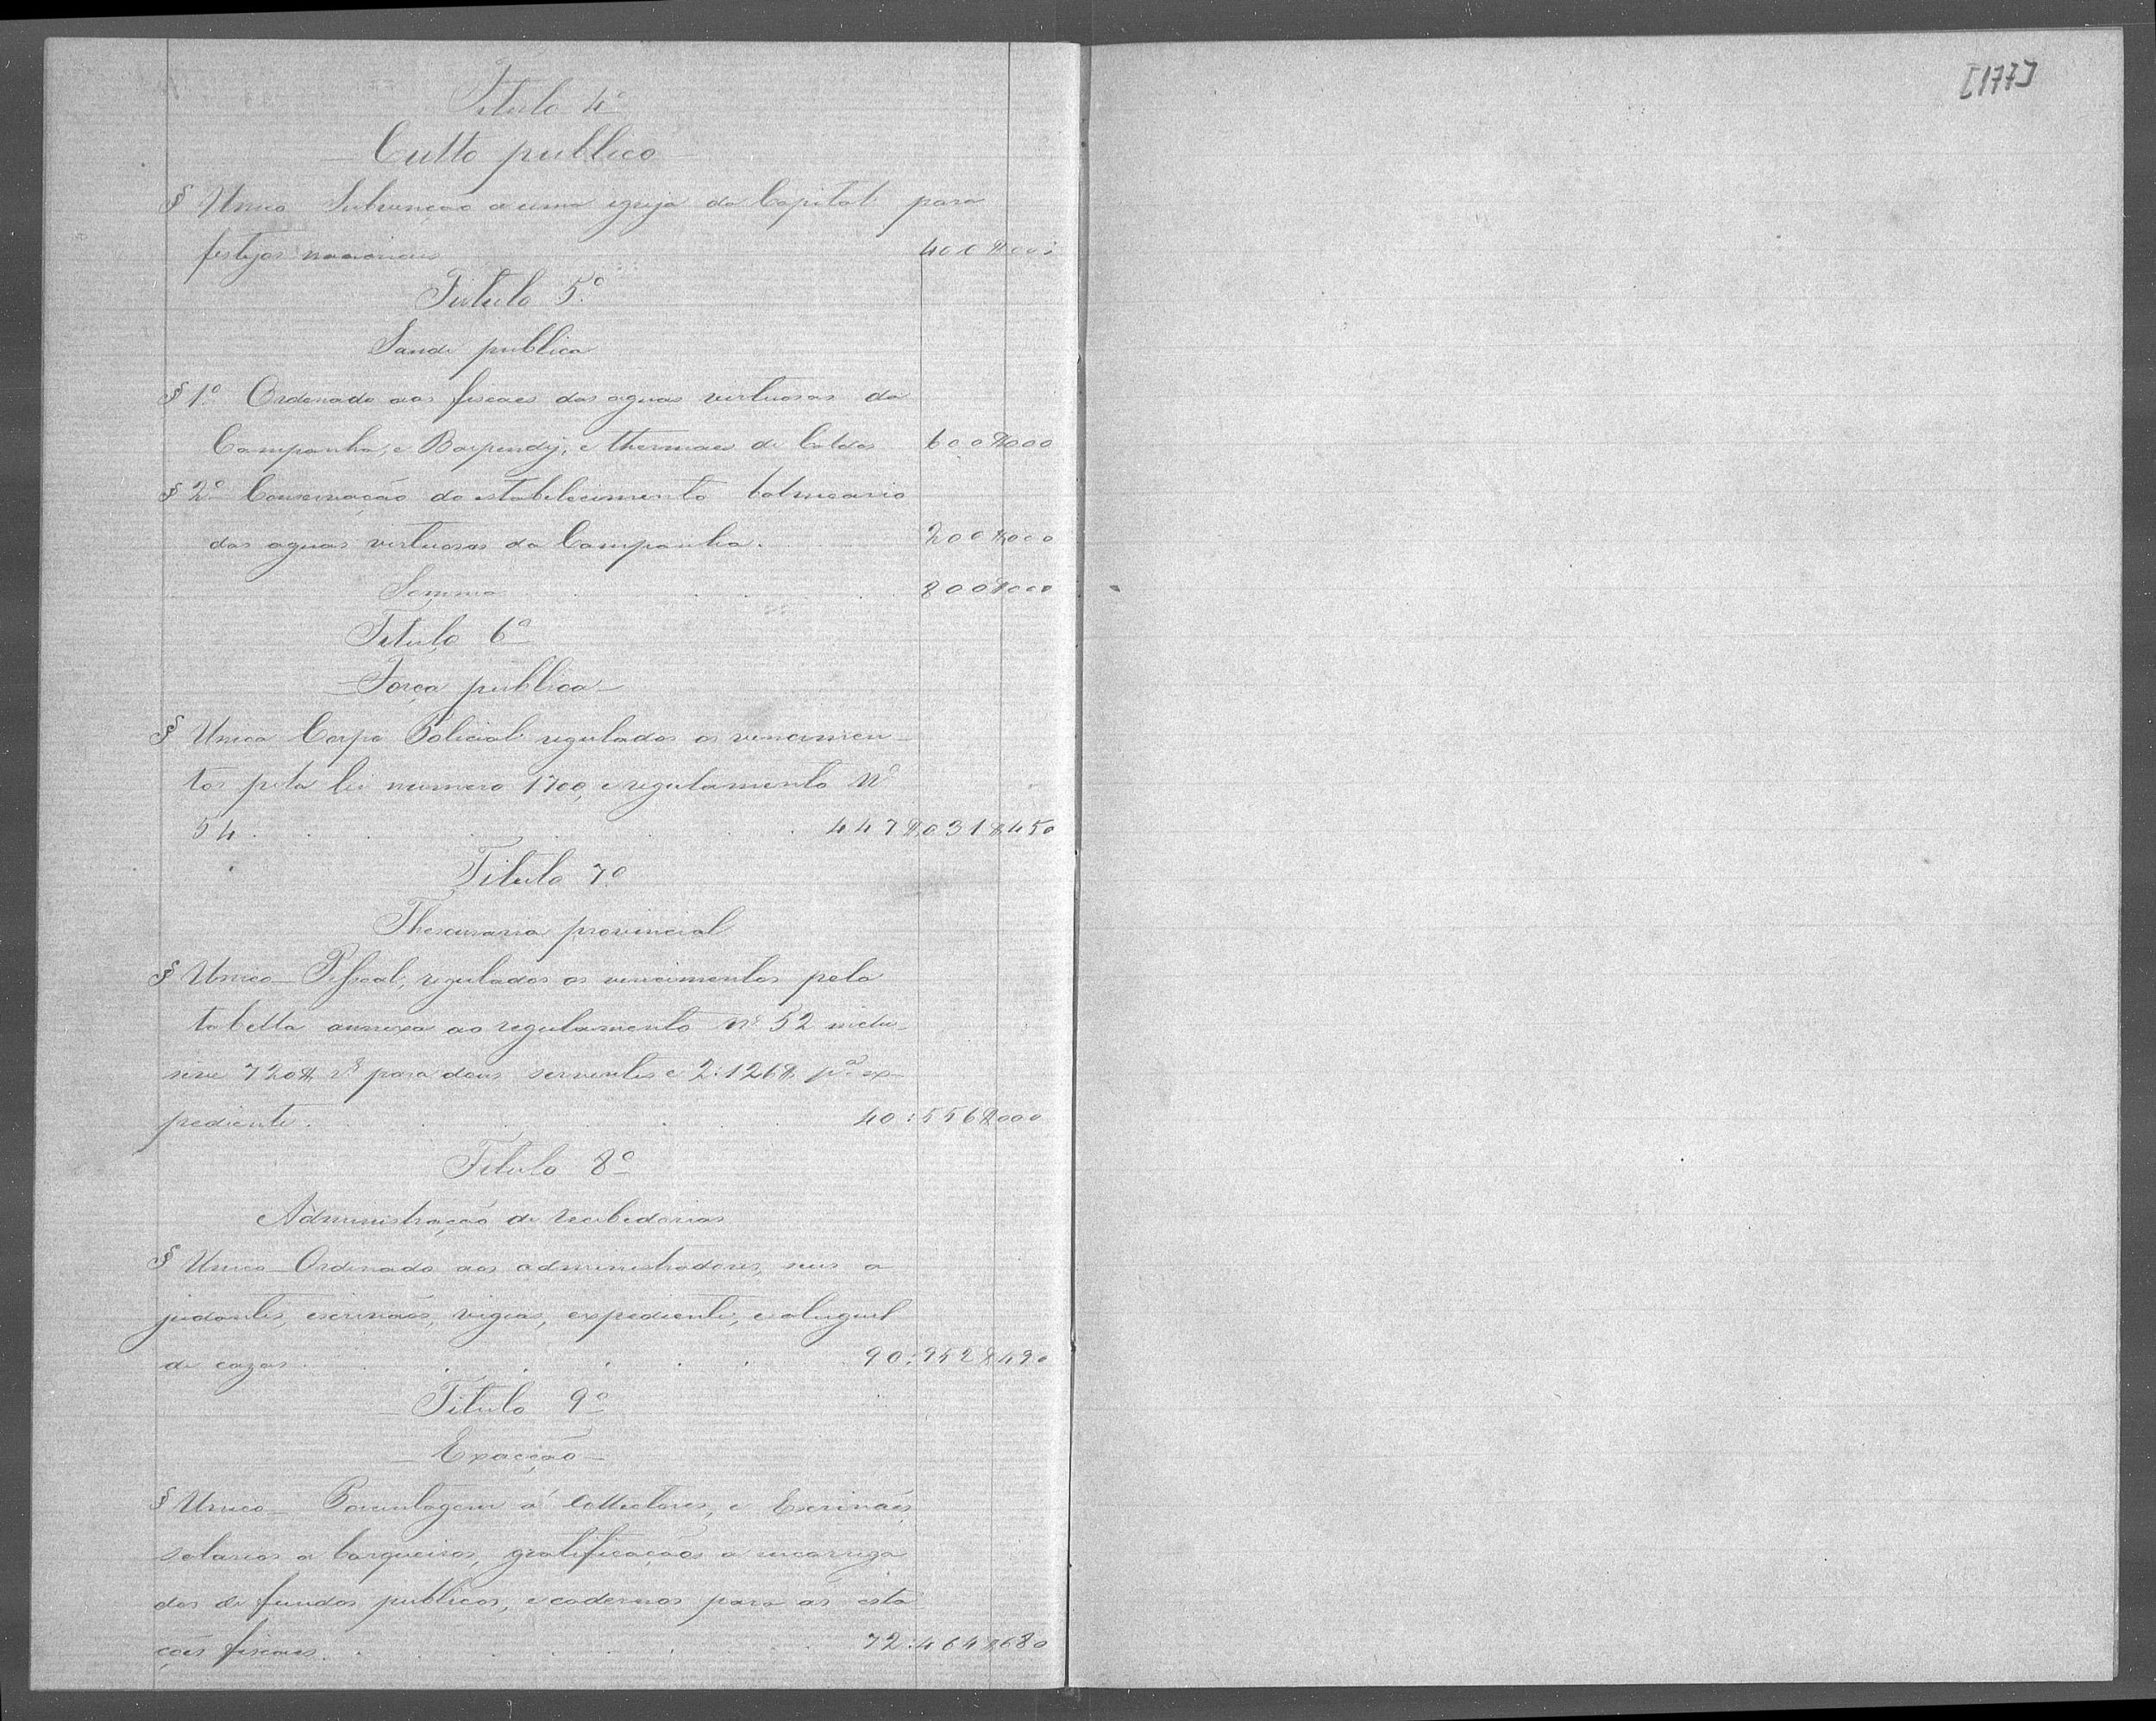 Titulo 4º
— Culto publico —
§ Unico Subvenção a uma igreja da Capital para
festejos nacionaes 400$000
Titulo 5º
Saude publica
§ 1º Ordenado aos fiscaes das aguas virtuosas da
Campanha, e Baependy, e thermaes de Caldas 600$000
§ 2º Conservação do estabelecimento balneario
das aguas virtuosas da Campanha. 200$000
Somma 800$000
Titulo 6º
— Força publica —
§ Unico Corpo Policial regulados os vencimen-
tos pela lei numero 1700, e regulamento Nº
54 . . . 447$031$450
Titulo 7º
Thesouraria provincial
§ Unico — Pessoal, regulados os vencimentos pela
tabella annexa ao regulamento nº 52 inclu-
sive 720$ rs para dous serventes e 2:126$ pª ex-
pediente . . . 40:556$000
Titulo 8º
Administração de recebedorias
§ Unico — Ordenado aos administradores, seus a
judantes, escrivaẽs, vigias, expediente, e aluguel
de cazas . . . 90:952$490
Titulo 9º
— Exacção —
§ Unico — Porcentagem á Collectores, e Escrivaẽs,
salarios a barqueiros, gratificaçaõs a encarrega
dos de fundos publicos, e cadernos para as esta
coẽs fiscaes . . . 72:464$680
[177]